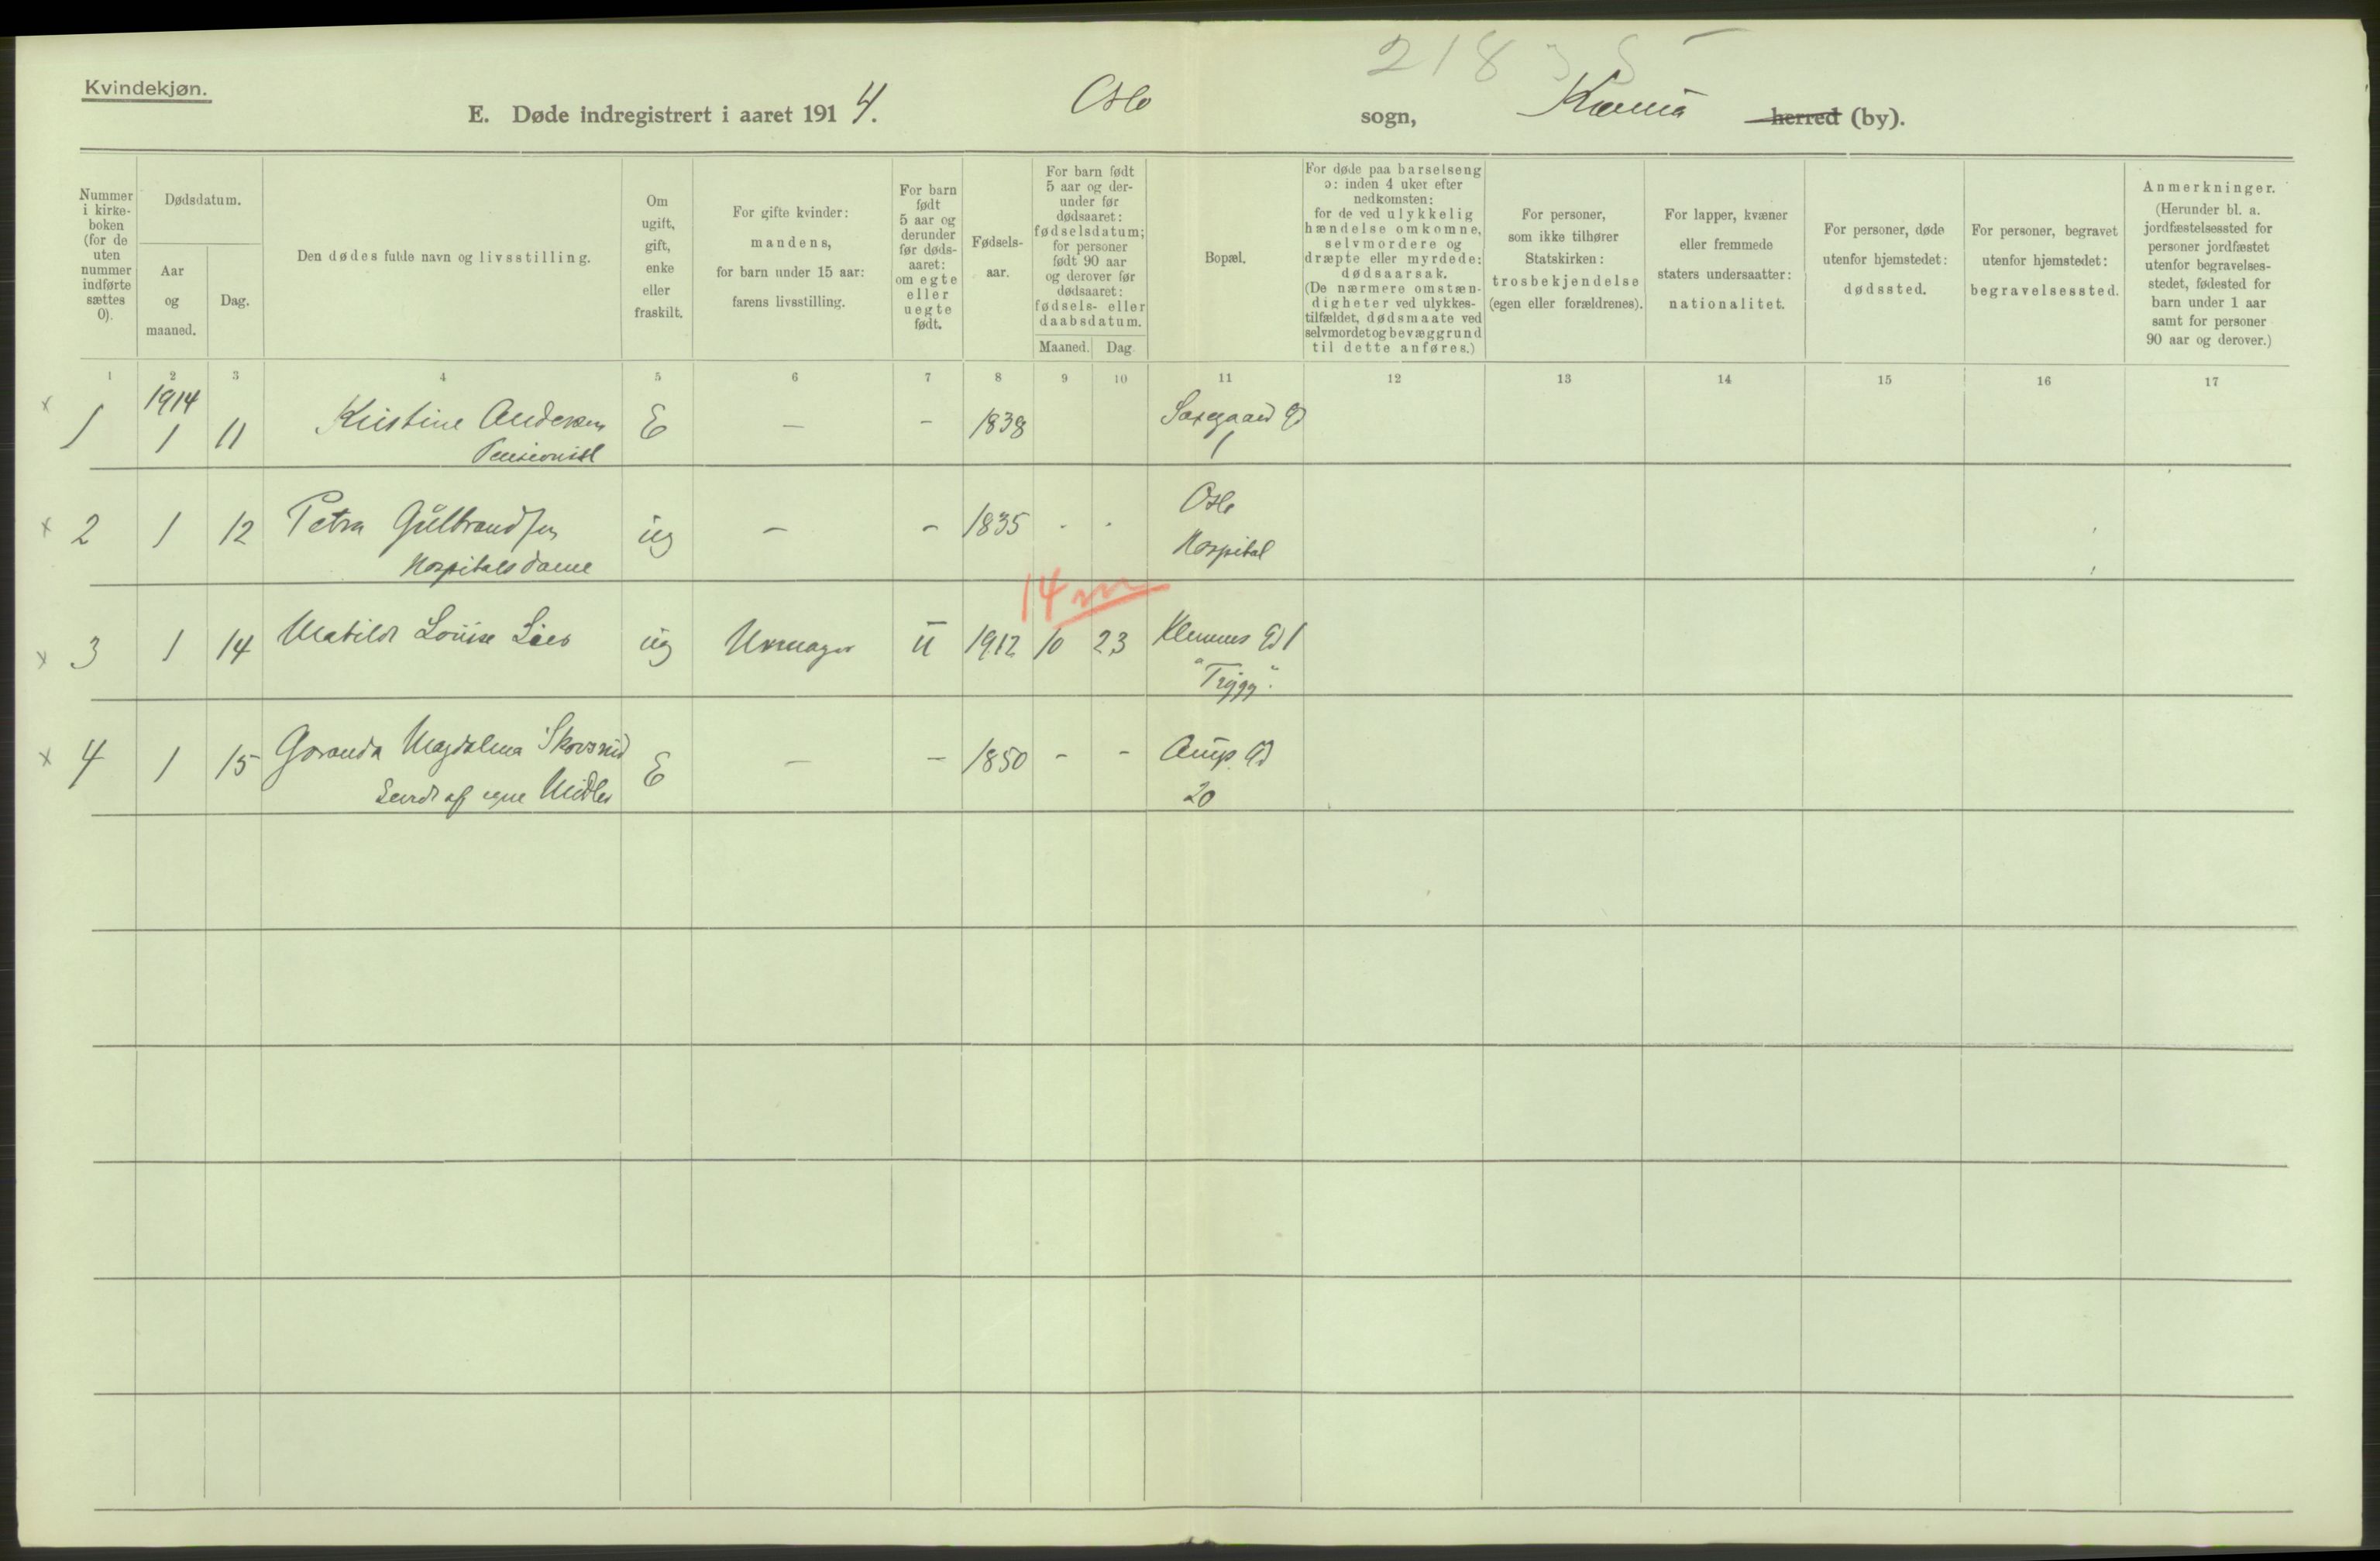 Kvindekjøn.
E. Døde indregistrert i aaret 1914. Oslo sogn, herred (by).
Nummer i kirkeboken (for de uten nummer indførte sættes 0).
Dødsdatum.
Aar og maaned.
Dag.
Den dødes fulde navn og livsstilling.
Om ugift, gift, enke eller fraskilt.
For gifte kvinder: mandens, for barn under 15 aar: farens livsstilling.
For barn født 5 aar og derunder før dødsaaret: om egte eller uegte født.
Fødselsaar.
For barn født 5 aar og derunder før dødsaaret: fødselsdatum; for personer født 90 aar og derover før dødsaaret: fødsels- eller daabsdatum.
Maaned. Dag.
Bopæl.
For døde paa barselseng ɔ: inden 4 uker efter nedkomsten: for de ved ulykkelig hændelse omkomne, selvmordere og dræpte eller myrdede: dødsaarsak. (De nærmere omstændigheter ved ulykkestilfældet, dødsmaate ved selvmordet og bevæggrund til dette anføres.)
For personer, som ikke tilhører Statskirken: trosbekjendelse (egen eller forældrenes).
For lapper, kvæner eller fremmede staters undersaatter: nationalitet.
For personer, døde utenfor hjemstedet: dødssted.
For personer, begravet utenfor hjemstedet: begravelsessted.
Anmerkninger. (Herunder bl. a. jordfæstelsessted for personer jordfæstet utenfor begravelsesstedet, fødested for barn under 1 aar samt for personer 90 aar og derover.)
1 2 3 4 5 6 7 8 9 10 11 12 13 14 15 16 17
1914
x 1 1 11 Kristine Andersen E — - 1838 Saxegaard Gd
Pensionist 1
x 2 1 12 Petra Gulbrandsen ug — - 1835 - - Oslo
Hospitalsdame Hospital
14 m
x 3 1 14 Matilde Louise ug Urmager u 1912 10 23 Klemens Gd 1
"Trygg".
x 4 1 15 Magdalena E — - 1850 - - Gd
Levede af egne Midler 20